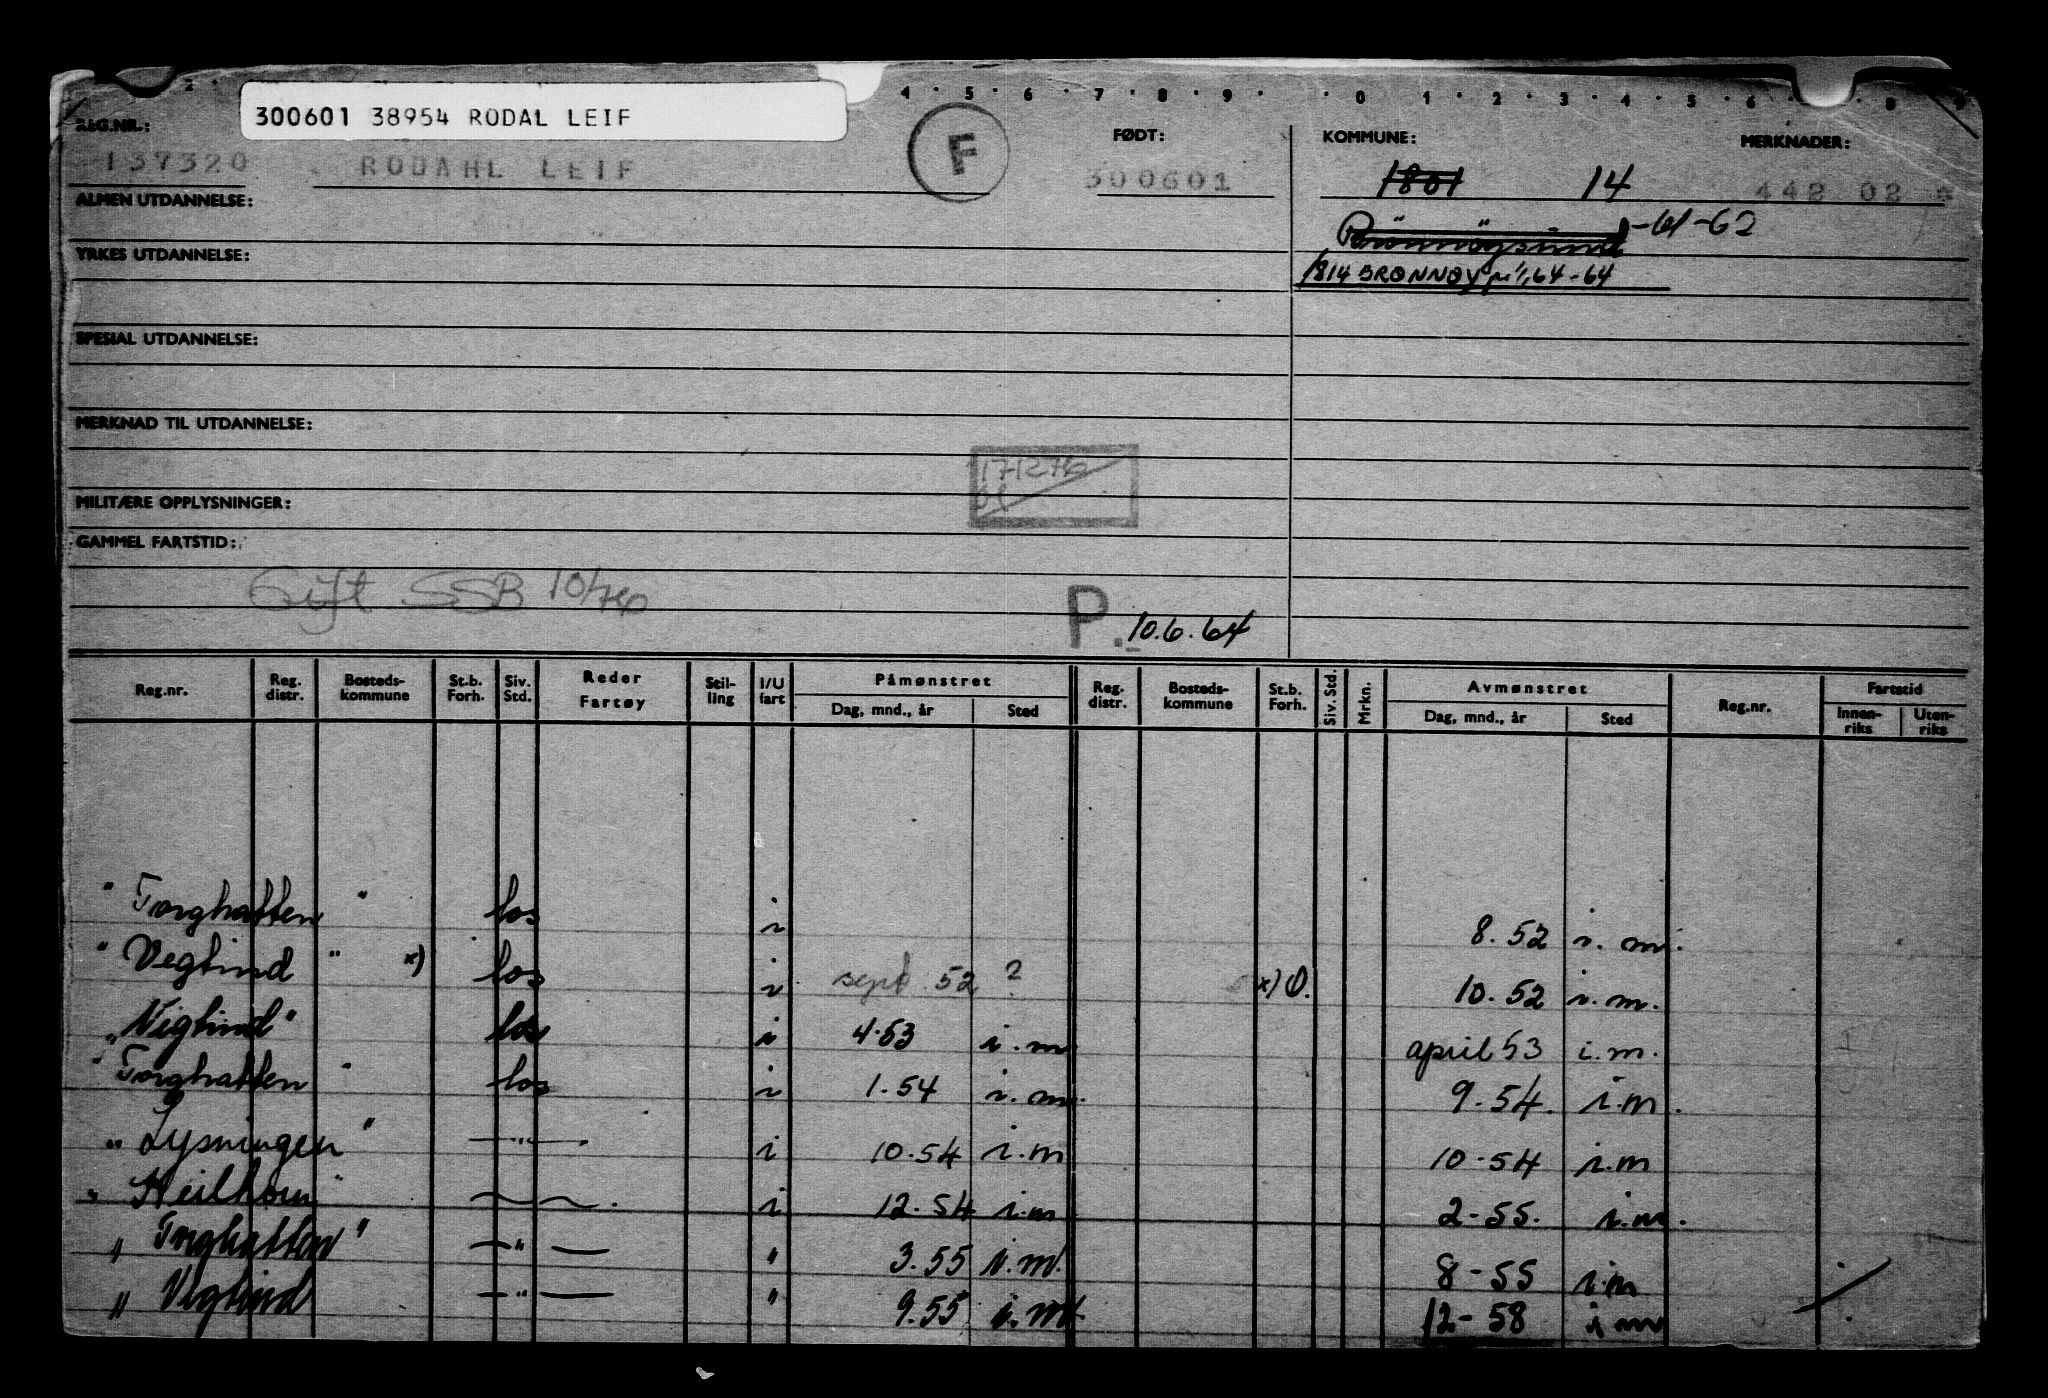 300601 38954 RODAL LEIF
REG.NR.: FØDT: KOMMUNE: MERKNADER:
137320 RODAHL LEIF F 300601 1801 14 442 02
ALMEN UTDANNELSE:
Brönnöysund -61-62
YRKES UTDANNELSE:
1814 BRØNNØY pr 1/1, 64-64
SPESIAL UTDANNELSE:
MERKNAD TIL UTDANNELSE:
171276
MILITÆRE OPPLYSNINGER:
GAMMEL FARTSTID:
Gift SSB 10/76
P. 10.6.64
Reg.nr. Reg. distr. Bosteds-kommune St.b. Forh. Siv. Std. Reder Fartøy Stil-ling I/U fart Påmønstret Dag, mnd., år Sted Reg. distr. Bosteds-kommune St.b. Forh. Siv. Std. Mrkn. Avmønstret Dag, mnd., år Sted Reg.nr. Fartstid Innen-riks Uten-riks
" Torghatten " los i 8. 52 i. m.
" Vegtind " x) los i sept 52 ? x) O. 10. 52 i. m.
" Vegtind " los i 4.53 i. m. april 53 i. m.
" Torghatten " los i 1.54 i. m. 9.54. i.m.
" Lysningen " — " — i 10.54 i.m 10-54 i.m
" Heilhorn " i 12.54 i.m 2-55. i.m.
" Torghatten " — " — " 3.55 i.m. 8-55 i.m
" Vegtind — " — " 9.55 i.m. 12-58 i m